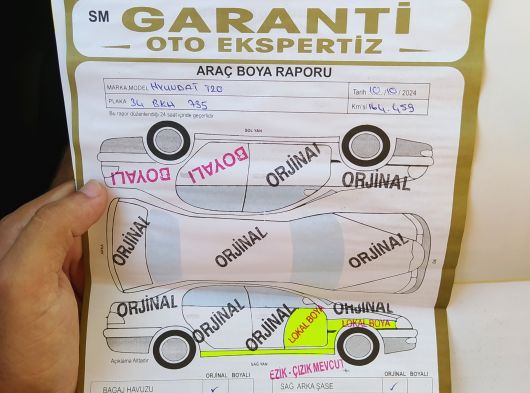 SM GARANTİ
OTO EKSPERTİZ
ARAÇ BOYA RAPORU
MARKA MODEL HYUNDAI İ20
Tarih 10/10/2024
PLAKA 34 BKH 735
Km'si 164.459
Bu rapor düzenlendiği 24 saat içinde geçerlidir.
SOL YAN
BOYALI
BOYALI
ORJİNAL
ORJİNAL
ORJİNAL
ORJİNAL
ORJİNAL
ORJİNAL
ORJİNAL
ORJİNAL
ORJİNAL
LOKAL BOYA
LOKAL BOYA
Açıklama Alttadır
SAĞ YAN
EZİK - ÇİZİK MEVCUT
ORJİNAL BOYALI
ORJİNAL BOYALI
BAGAJ HAVUZU ✓
SAĞ ARKA ŞASE ✓